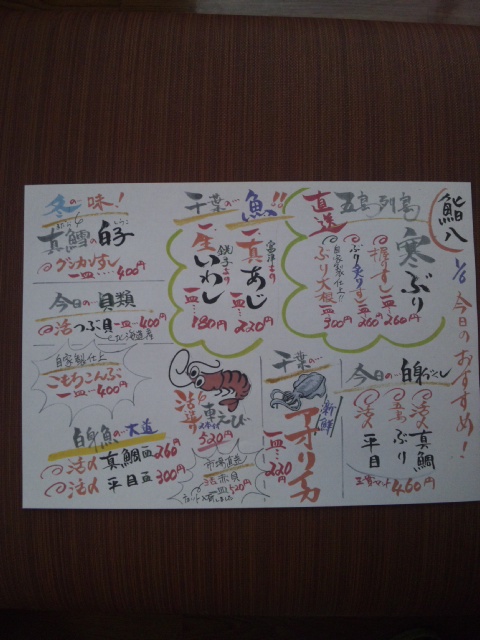 鮨八
1/6 今日のおすすめ!
直送 五島列島
寒ぶり
握りずし 一皿… 260円
ぶり炙りずし 一皿… 260円
自家製仕上!!
ぶり大根 300円
千葉の… 魚!!
富津より
真あじ
一皿… 220円
銚子より
生いわし
一皿… 180円
冬の味!
真鱈の白子
しらこ
グンカンずし
一皿…… 400円
今日の貝類
活つぶ貝 一皿…400円
自家製仕上
こもちこんぶ
一皿… 400円
白身魚の…
活〆 真鯛 皿 260円
活〆 平目 皿 300円
車えび
520円
市場直送
活赤貝
一皿 520円
千葉の…
新鮮
アオリイカ
一皿… 220円
今日の白身づくし
活〆 真鯛
五島 ぶり
活〆 平目
460円